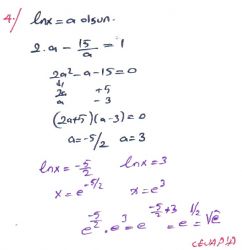 4./ lnx=a olsun.
2.a - 15/a = 1
2a² - a - 15 = 0
2a +5
a -3
(2a+5)(a-3)=0
a=-5/2 a=3
lnx=-5/2 lnx=3
x=e^-5/2 x=e^3
e^-5/2 . e^3 = e^-5/2+3 = e^1/2 = √e
CEVAP